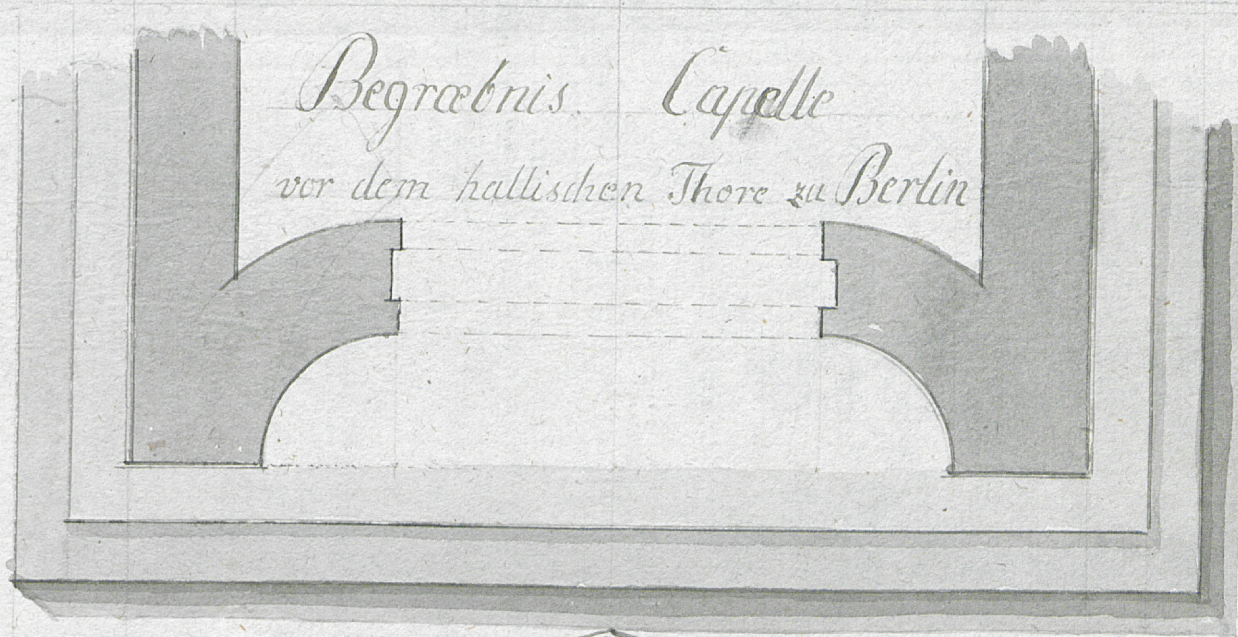 Begræbnis Capelle
vor dem hallischen Thore zu Berlin